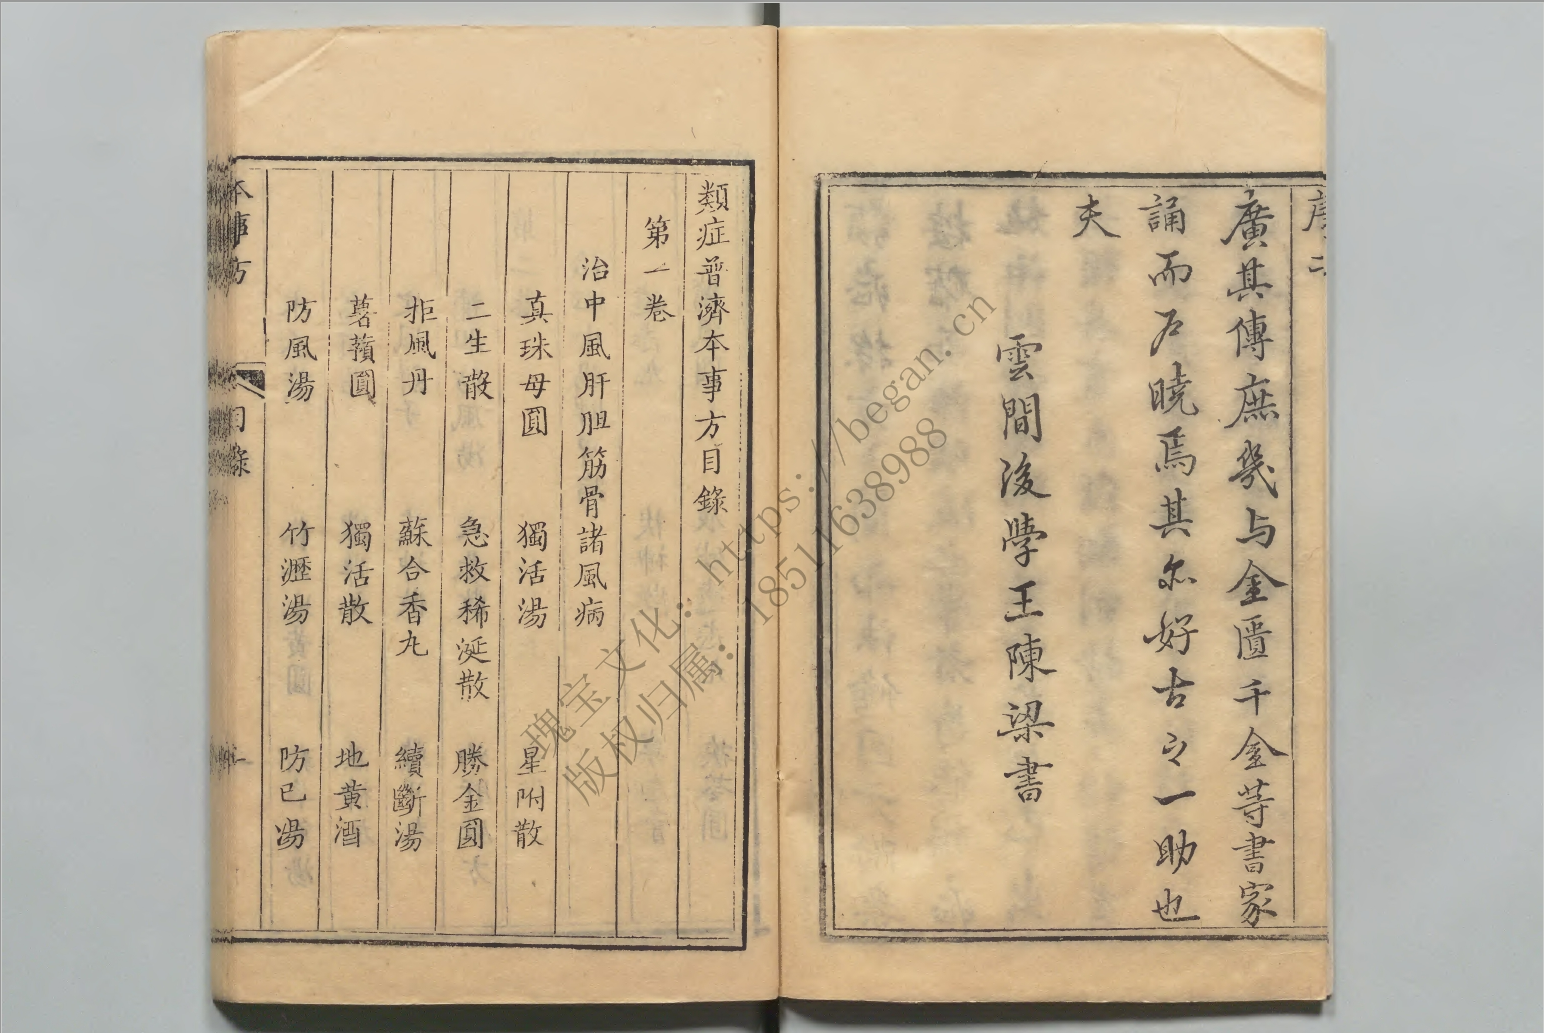 廣其傳庶幾与金匱千金等書家
誦而戶曉焉其亦好古之一助也
夫
雲間後學王陳梁書
類症普濟本事方目錄
第一卷
治中風肝胆筋骨諸風病
真珠母圓 獨活湯 星附散
二生散 急救稀涎散 勝金圓
拒風丹 蘇合香丸 續斷湯
薯蕷圓 獨活散 地黄酒
防風湯 竹瀝湯 防已湯
本事方 目錄 一
瑰宝文化：https://began.cn
版权归属：18511638988